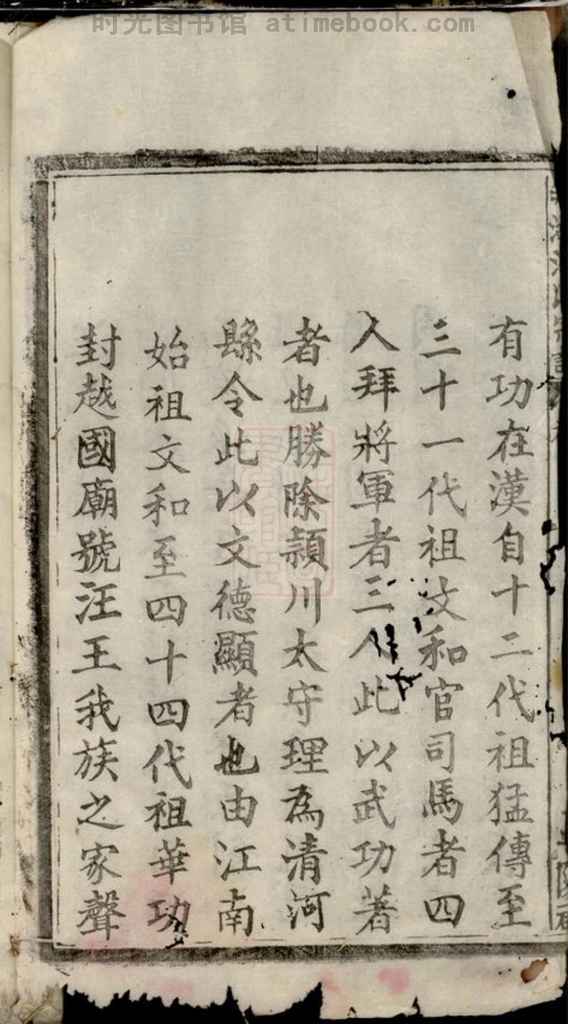 时光图书馆 atimebook.com
有功在漢自十二代祖猛傳至
三十一代祖文和官司馬者四
人拜將軍者三人此以武功著
者也勝除頴川太守理為清河
縣令此以文德顯者也由江南
始祖文和至四十四代祖華功
封越國廟號汪王我族之家聲